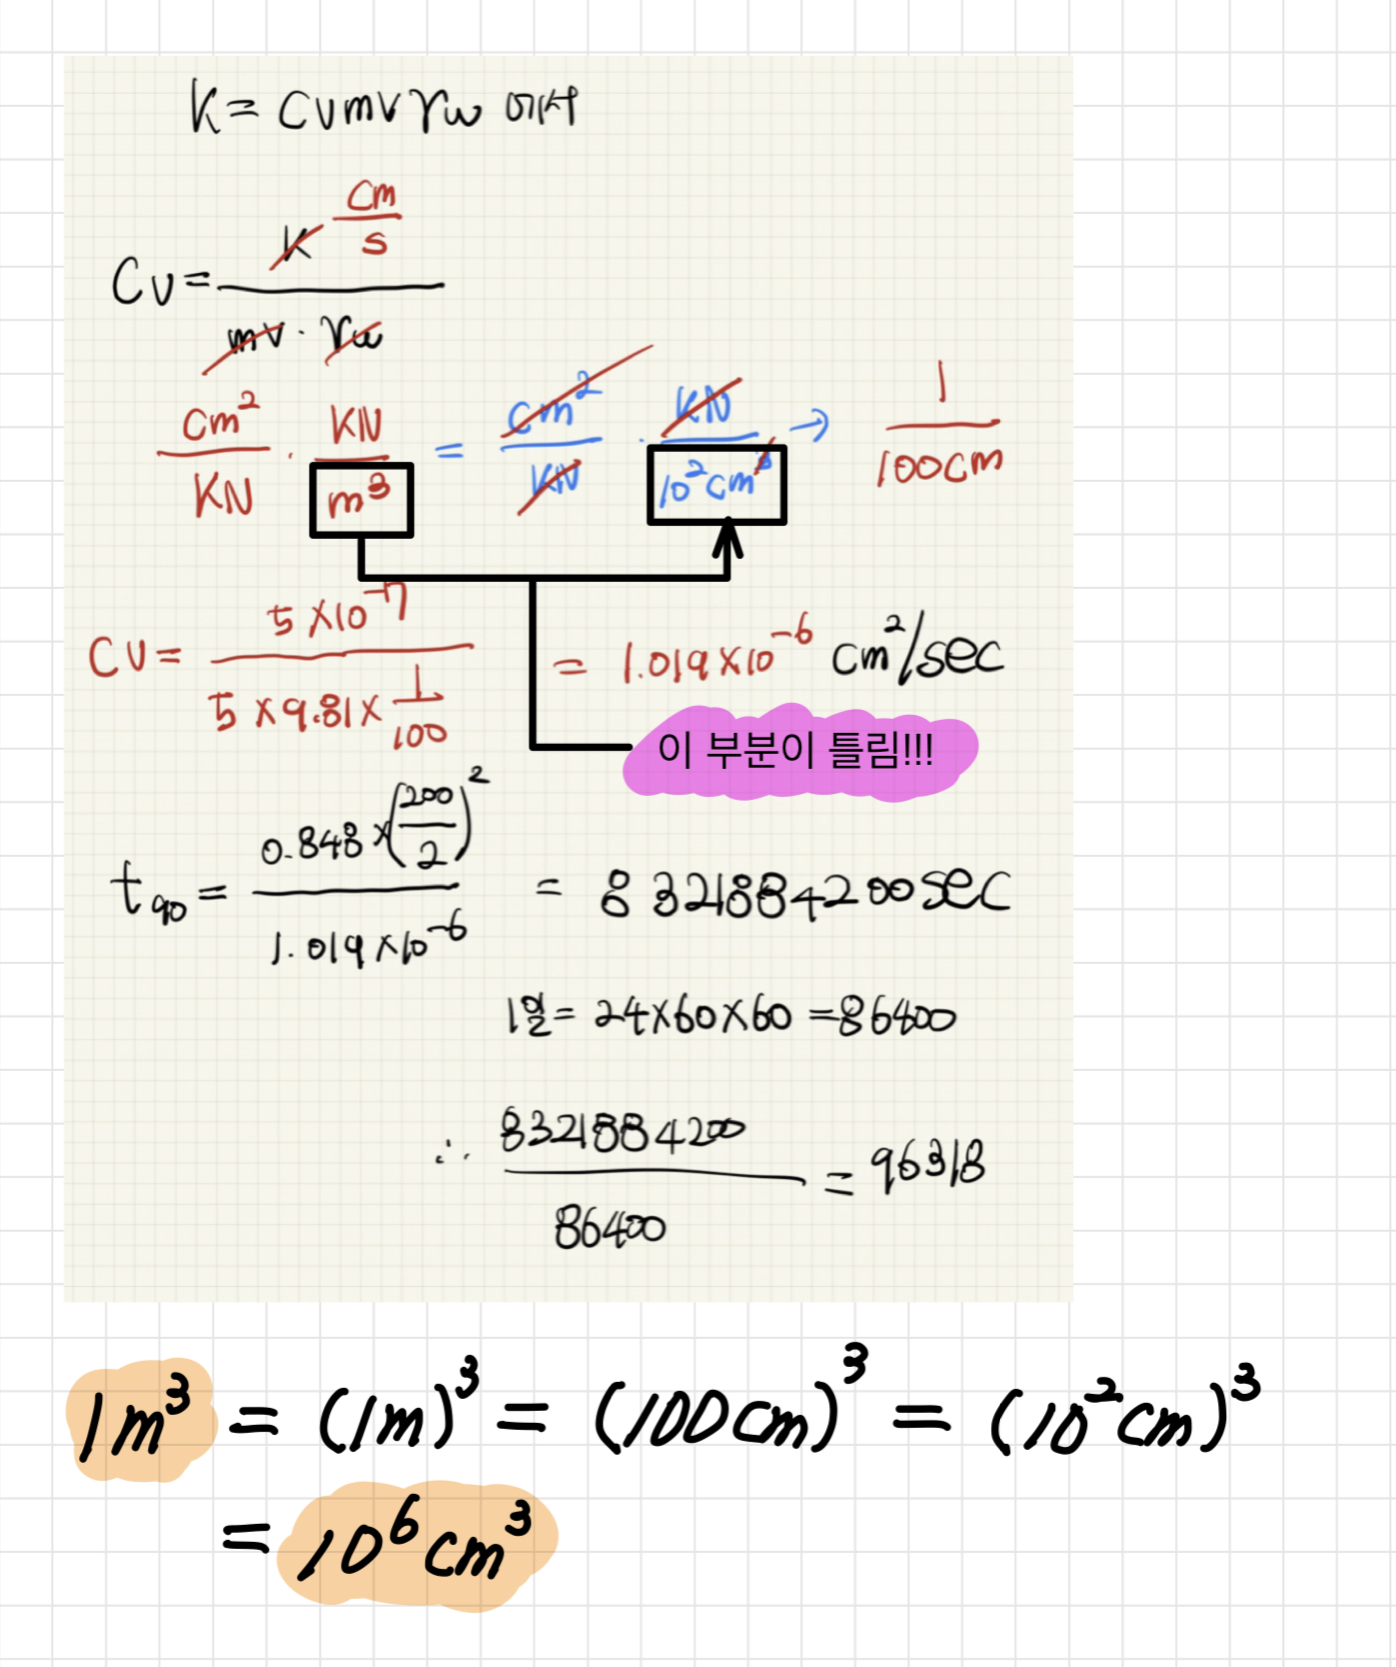 K = Cvmv γw 에서
Cv = K cm/s / mv · γw
cm²/KN · KN/m³ = cm²/KN · KN/10²cm³ → 1/100cm
Cv = 5×10⁻⁷ / 5×9.81×1/100 = 1.019×10⁻⁶ cm²/sec
이 부분이 틀림!!!
t₉₀ = 0.848×(200/2)² / 1.019×10⁻⁶ = 8321884200sec
1일 = 24×60×60 = 86400
∴ 8321884200 / 86400 = 96318
1m³ = (1m)³ = (100cm)³ = (10²cm)³
= 10⁶cm³